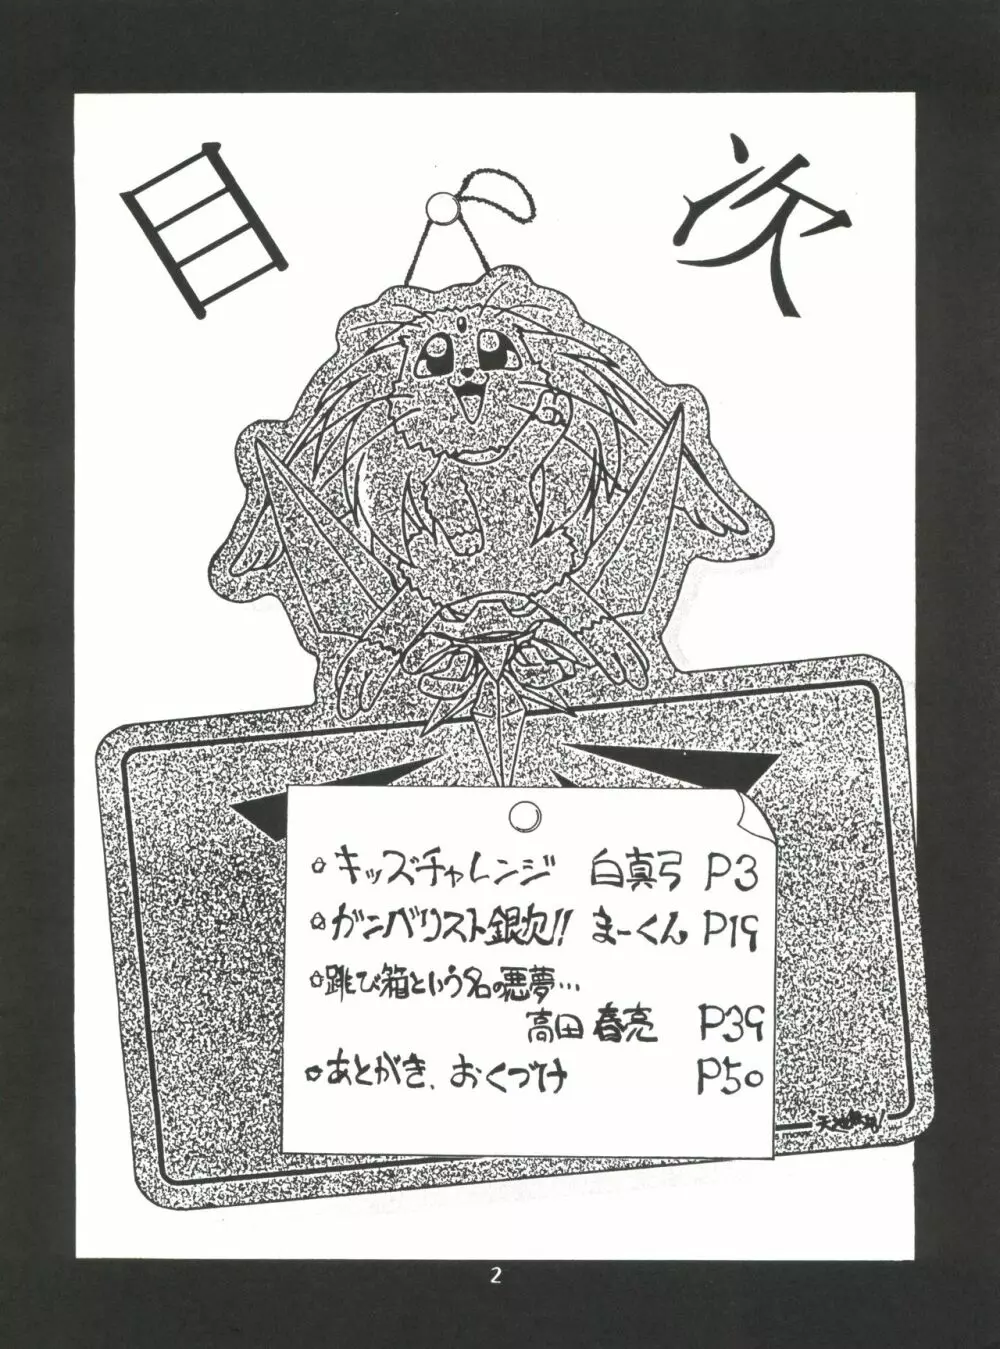 目次
☆キッズチャレンジ 白真弓 P3
☆ガンバリスト銀次!! まーくん P19
☆跳び箱という名の悪夢…
高田 春亮 P39
☆あとがき、おくづけ P50
2